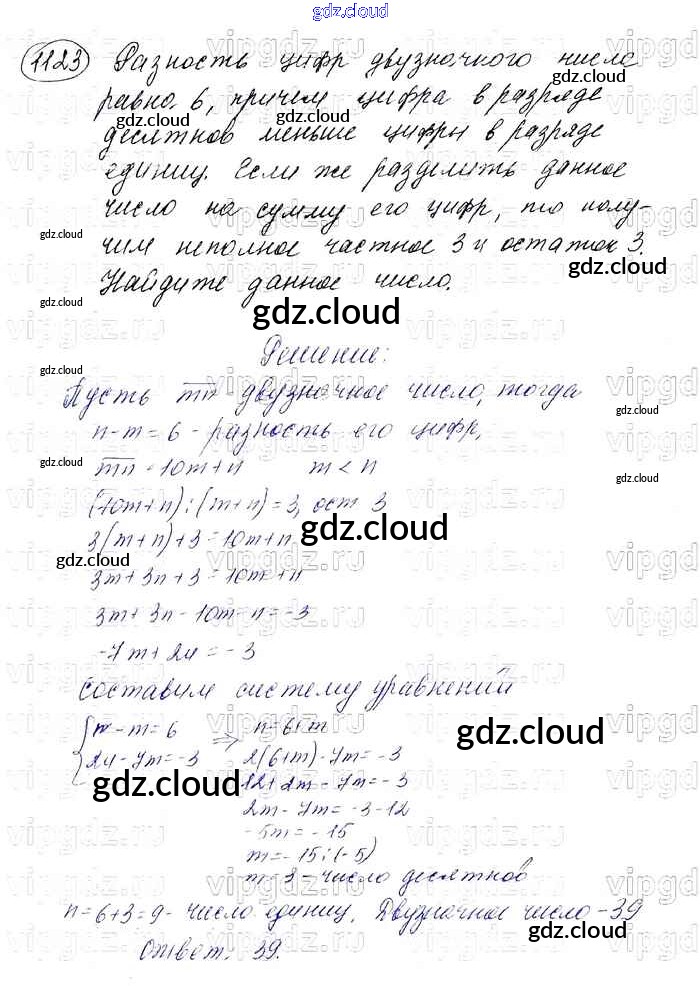 gdz.cloud
1123 Разность цифр двузначного числа
gdz.cloud
равно 6, причем цифра в разряде
gdz.cloud
десятков меньше цифры в разряде
единиц. Если же разделить данное
число на сумму его цифр, то полу-
gdz.cloud
чим неполное частное 3 и остаток 3.
gdz.cloud
Найдите данное число.
gdz.cloud
gdz.cloud
Решение:
gdz.cloud
Пусть mn - двузначное число, тогда
gdz.cloud
n-m=6 - разность его цифр,
gdz.cloud
mn = 10m+n m < n
gdz.cloud
(10m+n):(m+n)=3, ост 3
gdz.cloud
3(m+n)+3=10m+n
gdz.cloud
3m+3n+3=10m+n
3m+3n-10m-n=-3
-7m+2n=-3
составим систему уравнений
n-m=6 => n=6+m
gdz.cloud
2n-7m=-3 2(6+m)-7m=-3
gdz.cloud
12+2m-7m=-3
2m-7m=-3-12
-5m=-15
m=-15:(-5)
gdz.cloud
m=3 - число десятков
n=6+3=9 - число единиц. Двузначное число -39
gdz.cloud
Ответ: 39.
vipgdz.ru